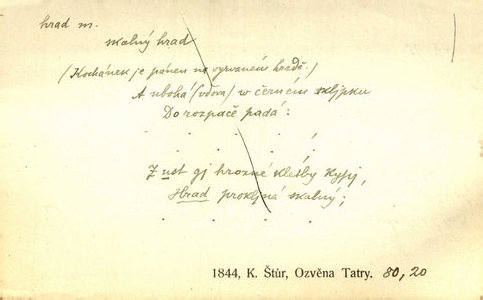 hrad m.
skalný hrad
(Kochánek je pánem na vyrvaném hradě.)
A ubohá (vdova) w černém skljpku
Do rozpačě padá:
. . . ,
. . . ;
Z ust gj hrozné kletby kypj,
Hrad prokljná skalný;
. . . .
1844, K. Štúr, Ozvěna Tatry, 80, 20